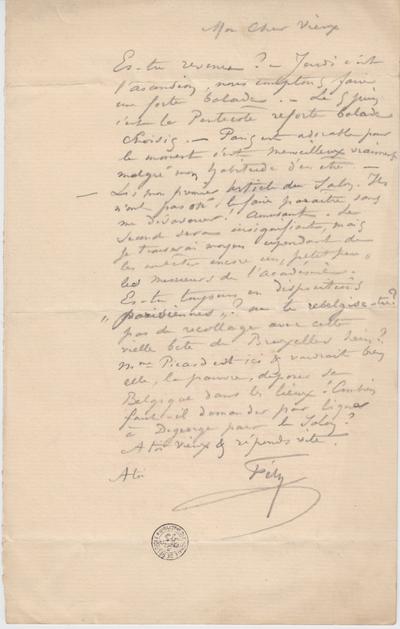 Mon Cher Vieux
Es-tu revenu ? — Jeudi c'est
l'ascension, nous comptons faire
une forte balade. — Le 5 juin
c'est la Pentecote re forte balade
choisie. — Paris est adorable pour
le moment c'est merveilleux vraiment
malgré mon habitude d'en être. —
— Lis mon premier article du Salon. Ils
n'ont pas osé le faire paraitre sans
me désavouer ! Amusant. Le
second sera insignifiant, mais
je trouverai moyen cependant de
les embêter encore un „ petit peu „
les messieurs de l'académie.
Es-tu toujours en dispositions
„ parisiennes „ ? ou te rebelgise-t-on ?
pas de recollage avec cette
vieille bête de Bruxelles hein ?
Mme Picard est ici & voudrait bien
elle, la pauvre, déposer sa
Belgique dans les lieux ! Combien
faut-il demander par ligne
à Degeorge pour le Salon ?
A toi vieux & réponds vite.
A toi
Fély